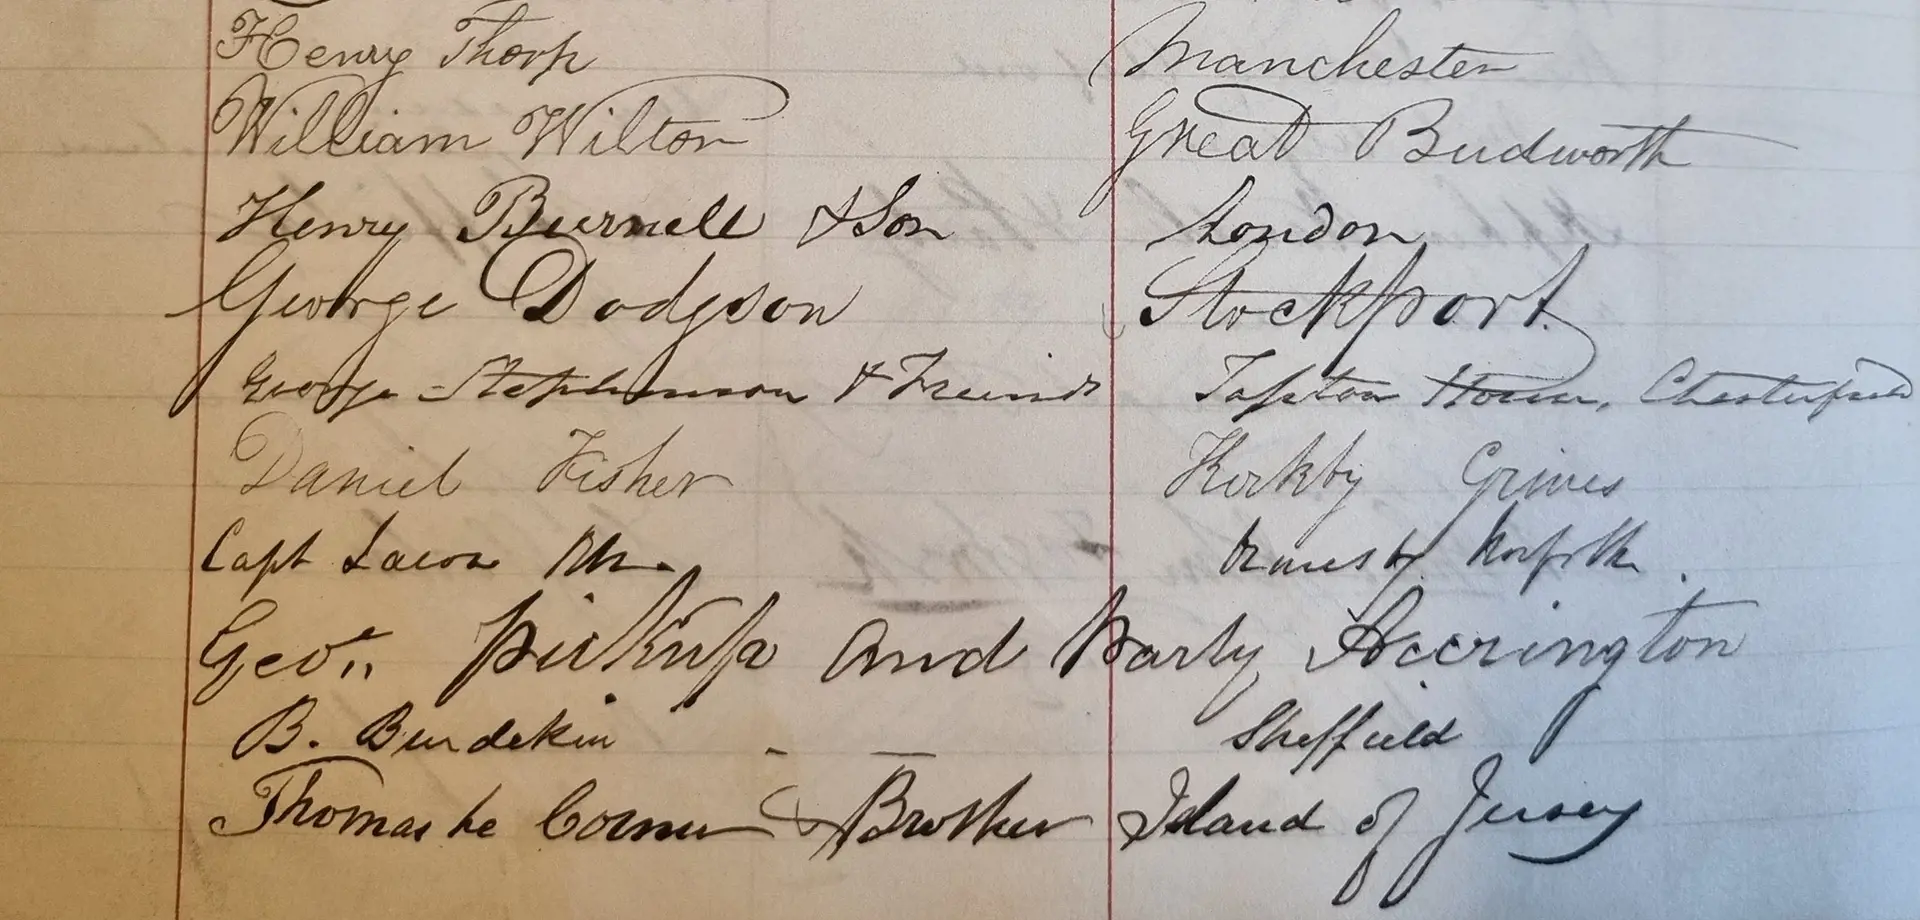 Henry Thorp Manchester
William Wilton Great Budworth
Henry Burnell & Son London
George Dodgson Stockport
George Stephenson & Freinds Tapton House, Chesterfield
Daniel Fisher Kirkby Grimes
Capt Lacon Ormesby Norfolk.
Geo,, Pickup and Party Accrington
B. Burdekin - — Sheffield
Thomas le & Brother Island of Jersey